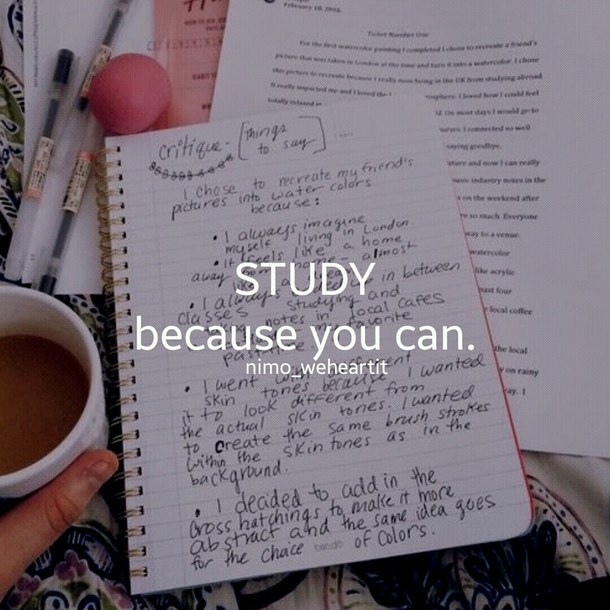 February 19, 2016
Ticket Number One
For the first watercolor painting I completed I chose to recreate a friend's
picture that was taken in London at the time and turn it into a watercolor. I chose
this picture to recreate because I really miss being in the UK from studying abroad
It really impacted me and I loved the atmosphere. I loved how I could feel
totally relaxed
On most days I would go to
I connected so well
saying goodbye.
and now I can really
music industry notes in the
on the weekend after
so much. Everyone
way to a venue.
watercolor
like acrylic
local coffee
the local
on rainy
critique- [things
to say] ....
I chose to recreate my friend's
pictures into water colors
because:
• I always imagine
myself living in London.
• It feels like a home
away from home- almost
• I always in between
classes studying and
notes in local cafes
favorite
• I went different
skin tones because I wanted
it to look different from
the actual skin tones. I wanted
to create the same brush strokes
within the skin tones as in the
background.
• I decided to add in the
cross hatchings to make it more
abstract and the same idea goes
for the choice of colors.
STUDY
because you can.
nimo_weheartit